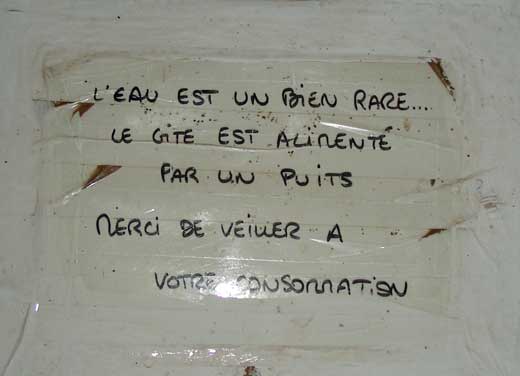 L'EAU EST UN BIEN RARE....
LE GITE EST ALIMENTÉ
PAR UN PUITS
MERCI DE VEILLER A
VOTRE CONSOMMATION